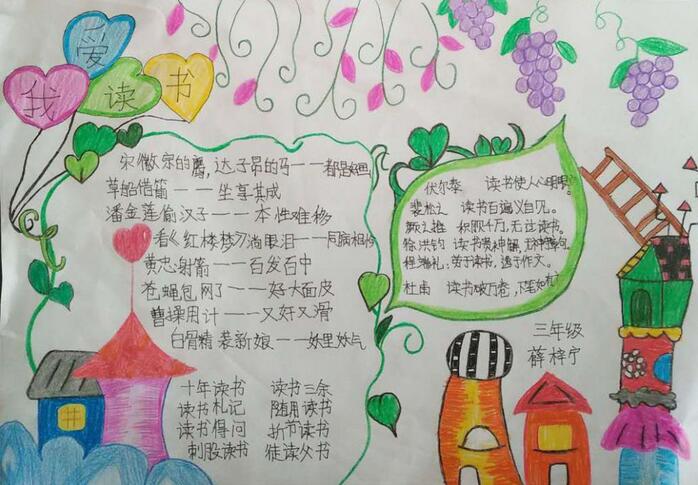 我爱读书
宋徽宗的鹰,达子昂的马——都是好画
草船借箭——坐享其成
潘金莲偷汉子——本性难移
看《红楼梦》淌眼泪——同病相怜
黄忠射箭——百发百中
苍蝇包网了——好大面皮
曹操用计——又奸又滑
白骨精装新娘——妖里妖气
十年读书 读书三余
读书札记 随月读书
读书得间 折节读书
刺股读书 徒读父书
伏尔泰 读书使人心明眼
裴松之 读书百遍义自见。
颜之推 积财千万,无过读书。
徐洪钧 读书贵神解,无神
程端礼,劳于读书,逸于作文。
杜甫 读书破万卷,下笔如有
三年级
薛梓宁